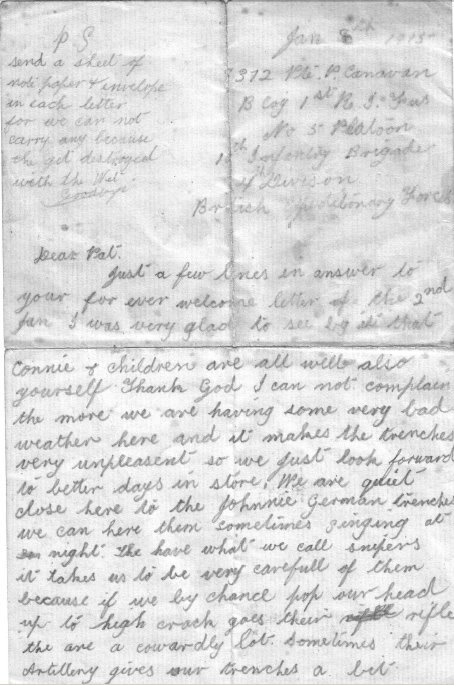 P S
send a sheet of
note paper & envelope
in each letter
for we can not
carry any because
the get destroyed
with the Wet
Goodbye
Jan 8th 1915
3312 Pte. P Canavan
B Coy 1st R. I. Fus
No 5 Platoon
10th Infantry Brigade
4th Divison
British Expeditionary Force
Dear Pat.
Just a few lines in answer to
your for ever welcome letter of the 2nd
Jan I was very glad to see by it that
Connie & Children are all well also
yourself Thank God I can not complain
the more we are having some very bad
weather here and it makes the trenches
very unpleasent so we just look forward
to better days in store. We are quiet
close here to the Johnnie German trenches
we can here them sometimes singing at
night the have what we call snipers
it takes us to be very carefull of them
because if we by chance pop our head
up to high crack goes their rifle
the are a cowardly lot sometimes their
Artillery gives our trenches a bit